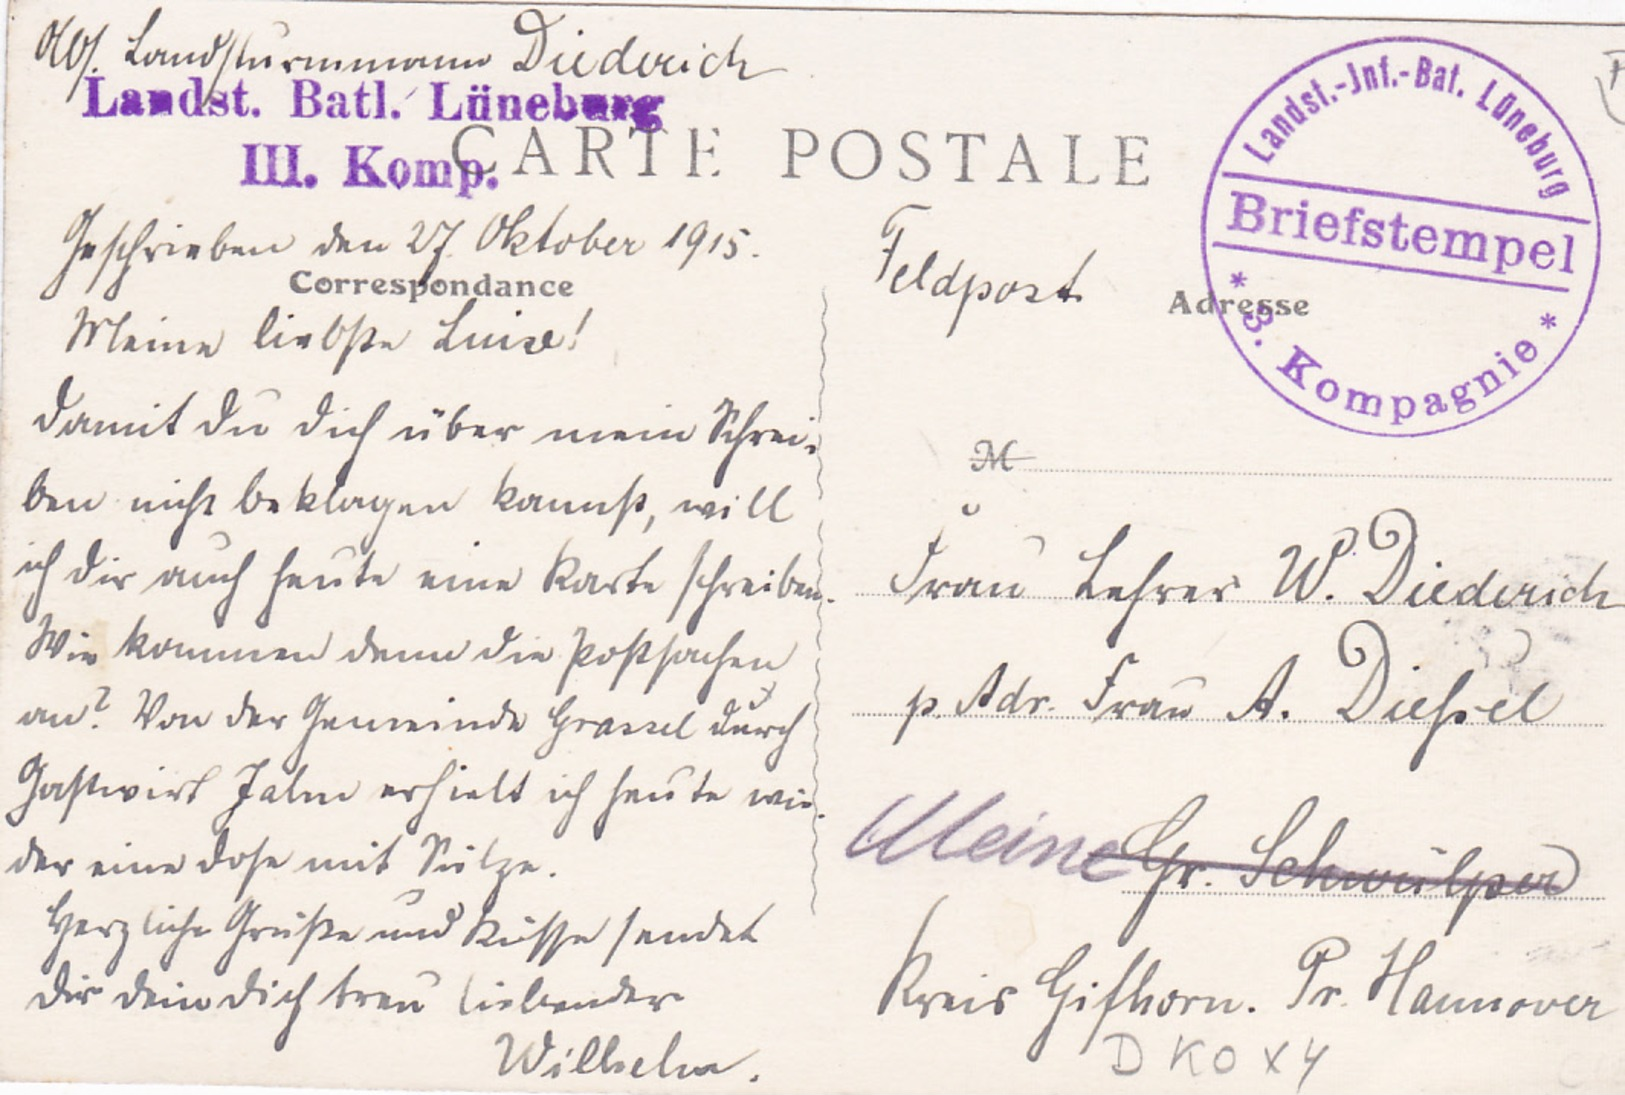 Abs. Landsturmmann Diederich
Landst. Batl. Lüneburg
III. Komp.
CARTE POSTALE
Geschrieben den 27. Oktober 1915.
Correspondance
Meine liebste Luise!
Damit du dich über mein Schrei-
ben nicht beklagen kannst, will
ich dir auch heute eine Karte schreiben.
Wie kommen denn die Postsachen
an? Von der Gemeinde Grassel durch
Gastwirt Jalm erhielt ich heute wie-
der eine Dose mit Sülze.
Herzliche Grüße und Küsse sendet
dir dein dich treu liebender
Wilhelm.
Landst.-Inf.-Bat. Lüneburg
Briefstempel
* 3. Kompagnie *
Feldpost
Adresse
M
Frau Lehrer W. Diederich
p. Adr. Frau A. Dießel
Meine Gr. Schwülper
Kreis Gifhorn. Pr. Hannover
DKOXY